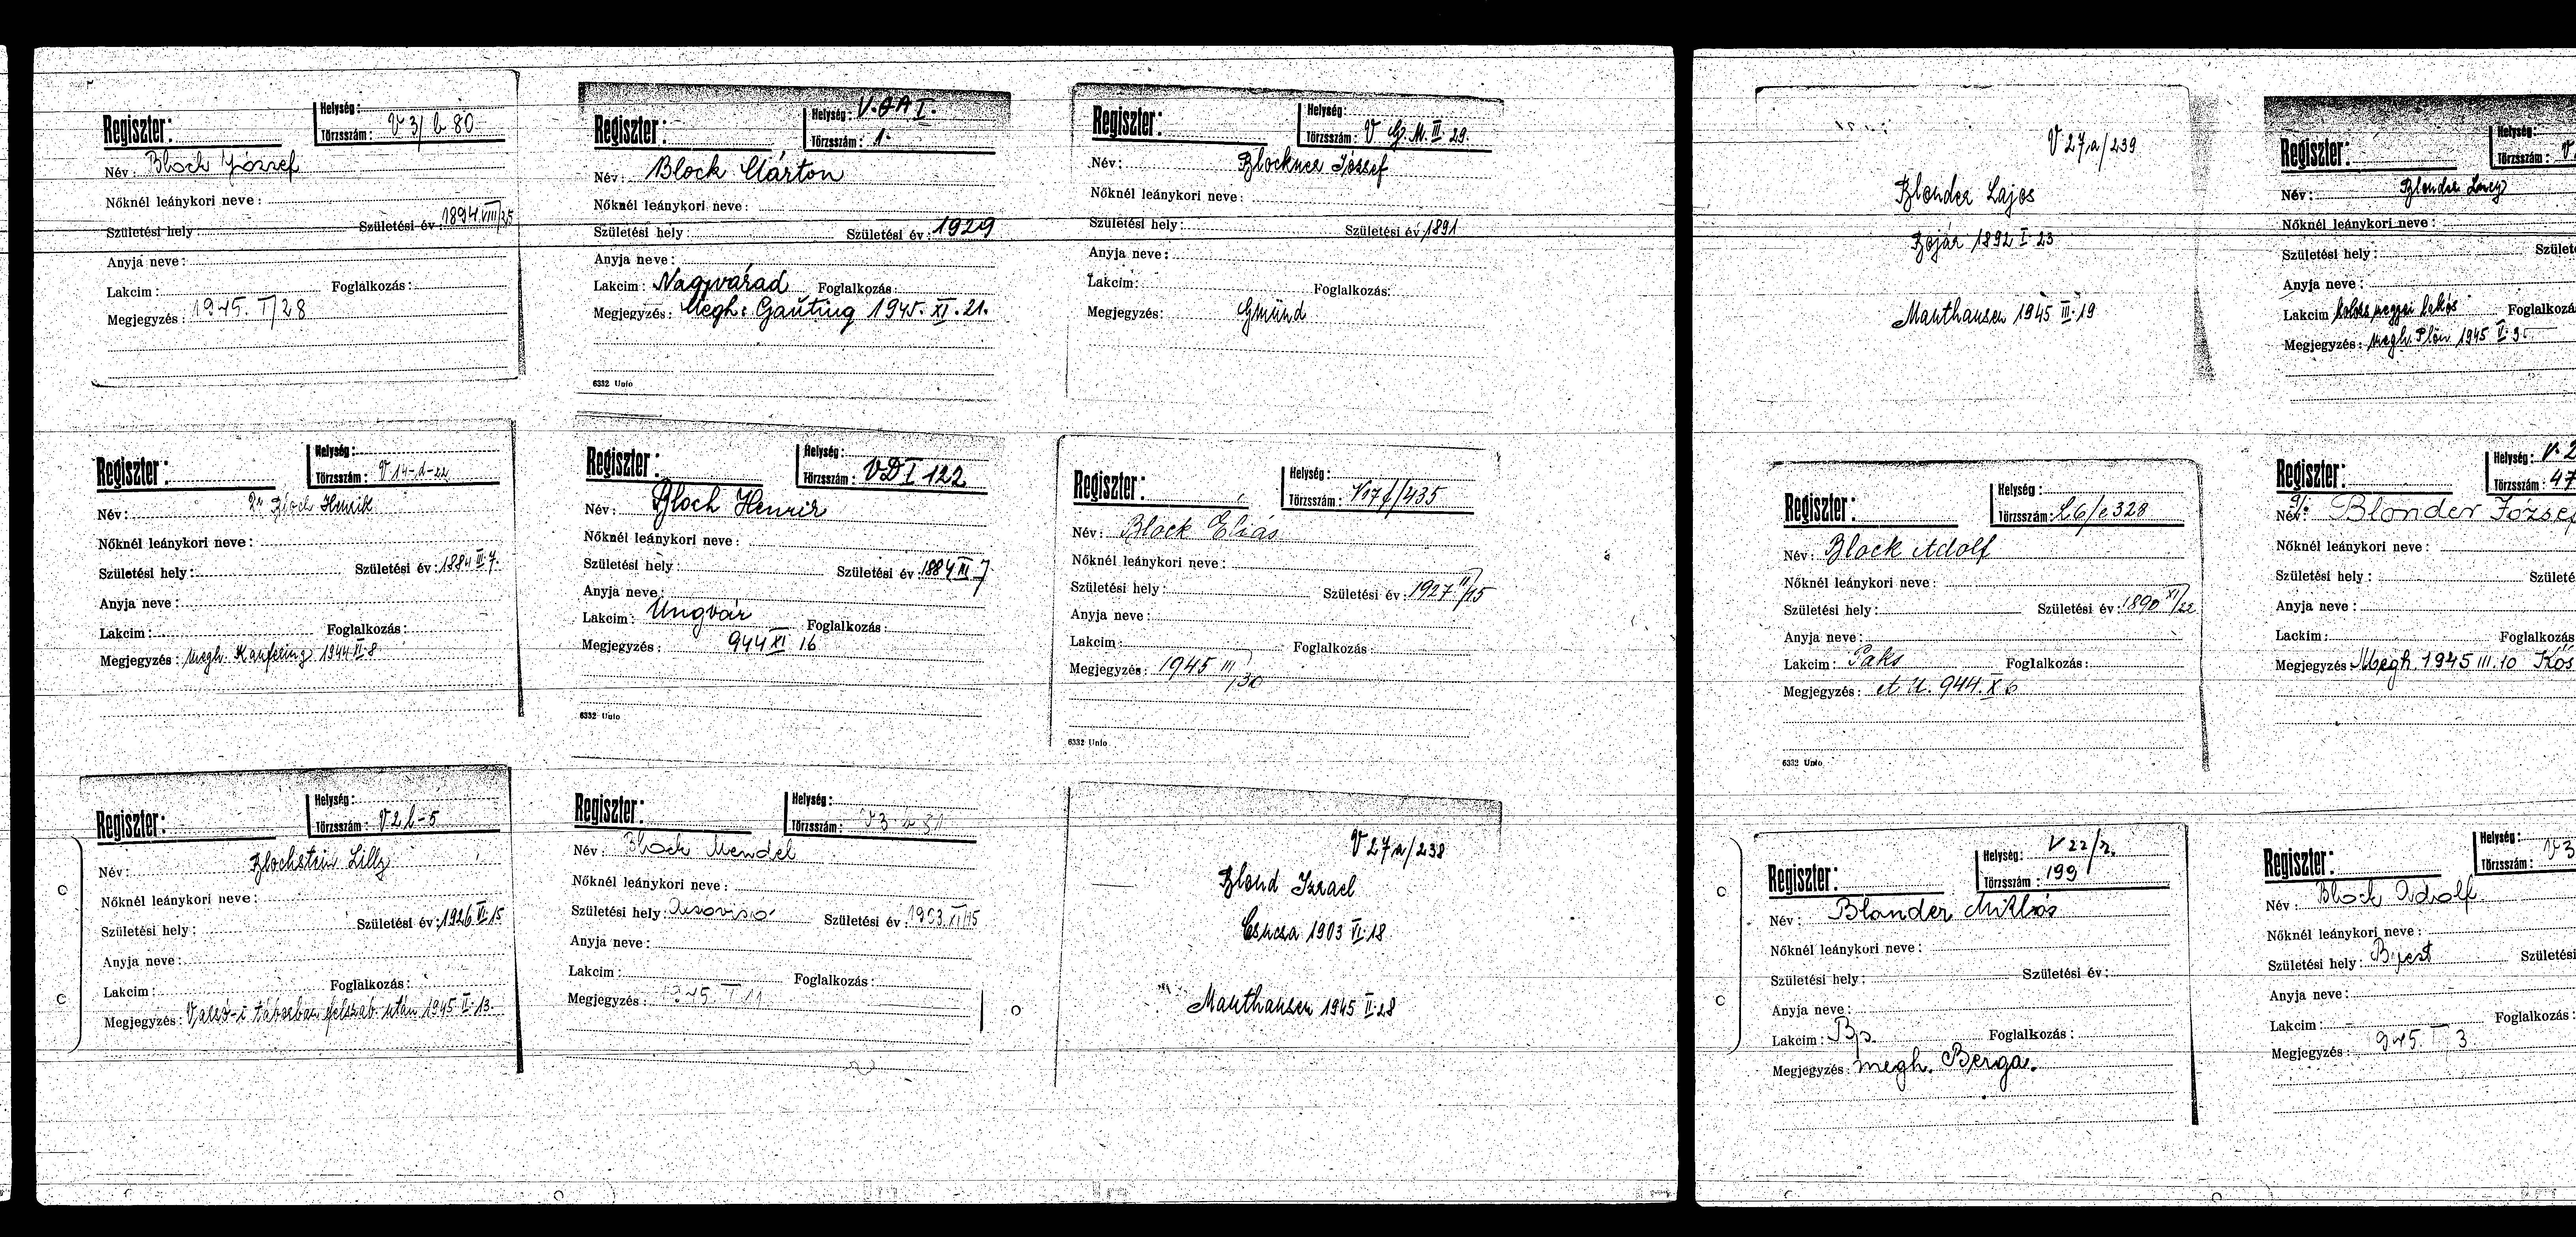 Regiszter:
Helység:
Törzsszám: V 3/b 80
Név: Bloch József
Nőknél leánykori neve:
Születési hely: Születési év: 1894.VIII/25
Anyja neve:
Lakcim: Foglalkozás:
Megjegyzés: 1945. I/28
Regiszter:
Helység: V.G A I.
Törzsszám: 1.
Név: Block Márton
Nőknél leánykori neve:
Születési hely: Születési év: 1929
Anyja neve:
Lakcim: Nagyvárad Foglalkozás:
Megjegyzés: Megh: Gauting 1945. XI. 21.
6332 Unio
Regiszter:
Helység:
Törzsszám: V G. M. III. 29.
Név: Blockner József
Nőknél leánykori neve:
Születési hely: Születési év 1891
Anyja neve:
Lakcim: Foglalkozás:
Megjegyzés: Gmünd
Regiszter:
Helység:
Törzsszám: V 14-d-22
Név: Dr Bloch Henrik
Nőknél leánykori neve:
Születési hely: Születési év: 1884 III. 7.
Anyja neve:
Lakcim: Foglalkozás:
Megjegyzés: Megh. Kaufering 1944 XI. 8
Regiszter:
Helység:
Törzsszám: VD I 122
Név: Bloch Henrik
Nőknél leánykori neve:
Születési hely: Születési év: 1884 III 7
Anyja neve:
Lakcim: Ungvár Foglalkozás:
Megjegyzés: 944 XI 16
6332 Unio
Regiszter:
Helység:
Törzsszám: V17f/435
Név: Block Eliás
Nőknél leánykori neve:
Születési hely: Születési év: 1927 II/15
Anyja neve:
Lakcim: Foglalkozás:
Megjegyzés: 1945 III/30
6332 Unio
Regiszter:
Helység:
Törzsszám: V 2 b-5
Név: Blochstein Lilly
Nőknél leánykori neve:
Születési hely: Születési év: 1926. VI. 15
Anyja neve:
Lakcim: Foglalkozás:
Megjegyzés: táborban felszab. után 1945 II. 13.
Regiszter:
Helység:
Törzsszám: V3 b 31
Név: Block Mendel
Nőknél leánykori neve:
Születési hely: Születési év: 1903. XI/15
Anyja neve:
Lakcim: Foglalkozás:
Megjegyzés: 1945. I 11
V 27/a/238
Blond Izrael
Csucsa 1903 VI. 18
Mauthausen 1945 II. 28
V 27/a/239
Blonder Lajos
1892 I. 23
Mauthausen 1945 III. 19
Regiszter:
Helység:
Törzsszám: V
Név:
Nőknél leánykori neve:
Születési hely: Születé
Anyja neve:
Lakcim Foglalkozá
Megjegyzés: Megh. Plön 1945 V. 3.
Regiszter:
Helység:
Törzsszám: L6/e328
Név: Block Adolf
Nőknél leánykori neve:
Születési hely: Születési év: 1890 XI/22
Anyja neve:
Lakcim: Paks Foglalkozás:
Megjegyzés: 944. X 6
6332 Unio
Regiszter:
Helység: V. 2
Törzsszám: 47
Név: Blonder József
Nőknél leánykori neve:
Születési hely: Születé
Anyja neve:
Lackim: Foglalkozás
Megjegyzés: Megh. 1945 III. 10 Kös
Regiszter:
Helység: V 22/
Törzsszám: 199
Név: Blander Miklós
Nőknél leánykori neve:
Születési hely: Születési év:
Anyja neve:
Lakcim: Bp. Foglalkozás:
Megjegyzés: megh. Berga.
Regiszter:
Helység:
Törzsszám: V3
Név: Block Adolf
Nőknél leánykori neve:
Születési hely: Bpest Születési
Anyja neve:
Lakcim: Foglalkozás:
Megjegyzés: 945. I 3